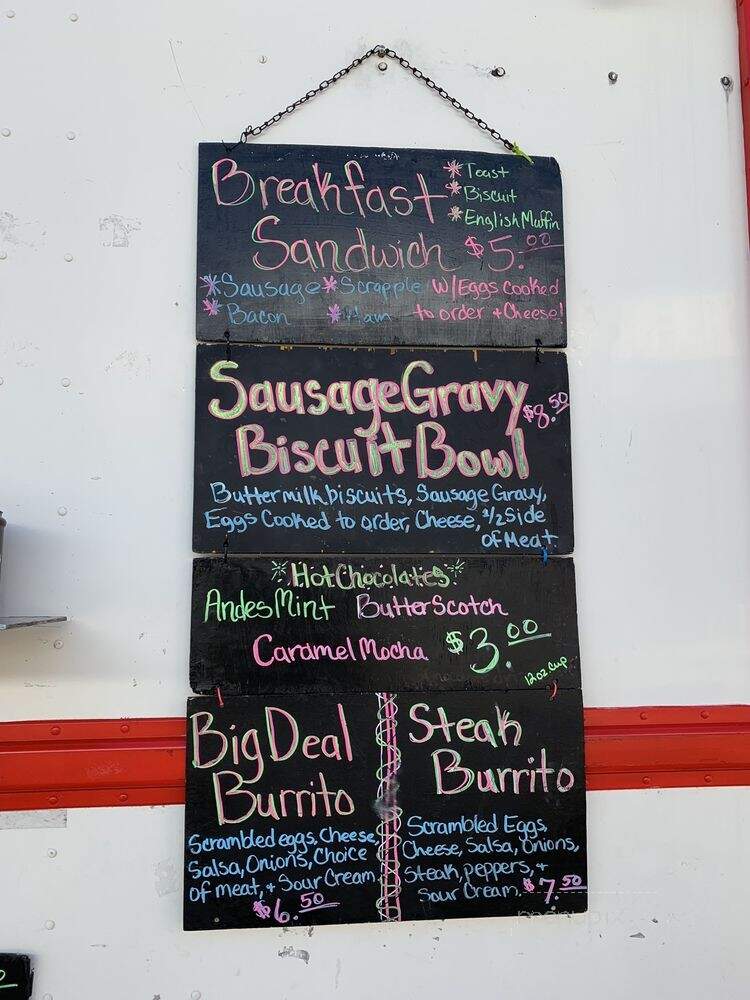 Breakfast
Sandwich $5.00
* Toast
* Biscuit
* English Muffin
* Sausage * Scrapple
* Bacon * Ham
w/Eggs cooked
to order + Cheese!
Sausage Gravy
Biscuit Bowl
$8.50
Buttermilk biscuits, Sausage Gravy,
Eggs Cooked to order, Cheese, 1/2 Side
of Meat
Hot Chocolates
Andes Mint Butter Scotch
Caramel Mocha $3.00
12oz. cup
Big Deal
Burrito
Scrambled eggs, Cheese,
Salsa, Onions, Choice
of meat, + Sour Cream
$6.50
Steak
Burrito
Scrambled Eggs,
Cheese, Salsa, Onions,
Steak, peppers, +
Sour Cream. $7.50